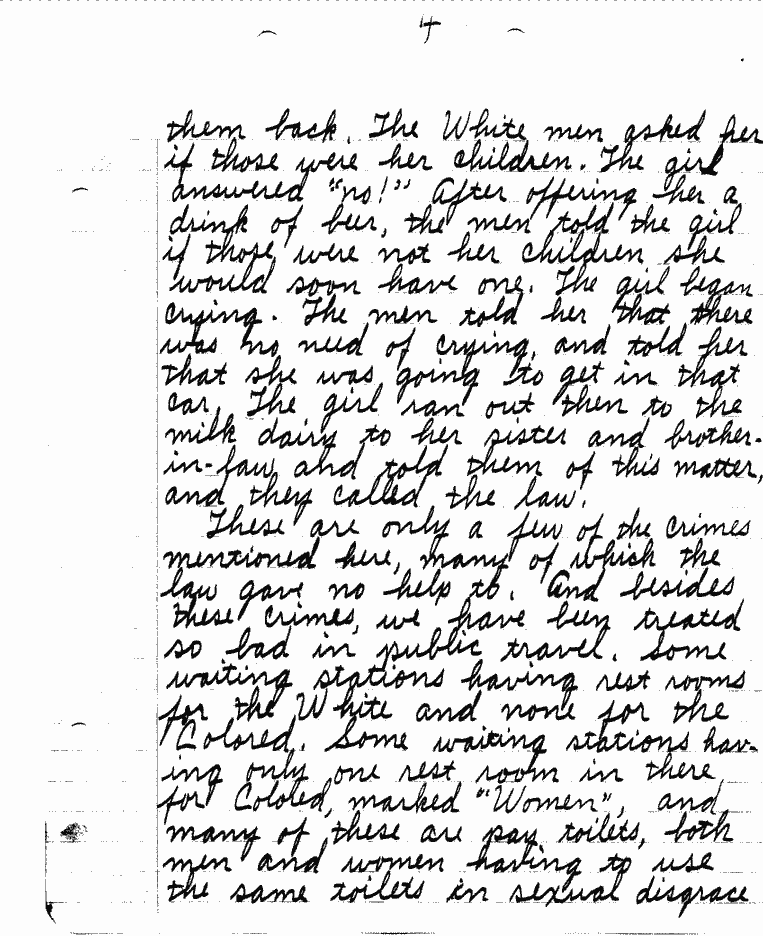 4
them back. The White men asked her
if those were her children. The girl
answered "no!" After offering her a
drink of beer, the men told the girl
if those were not her children she
would soon have one. The girl began
crying. The men told her that there
was no need of crying, and told her
that she was going to get in that
car. The girl ran out then to the
milk dairy to her sister and brother-
in-law and told them of this matter,
and they called the law.
These are only a few of the crimes
mentioned here, many of which the
law gave no help to. And besides
these crimes, we have been treated
so bad in public travel. Some
waiting stations having rest rooms
for the White and none for the
Colored. Some waiting stations hav-
ing only one rest room in there
for Colored, marked "Women", and
many of these are pay toilets, both
men and women having to use
the same toilets in sexual disgrace